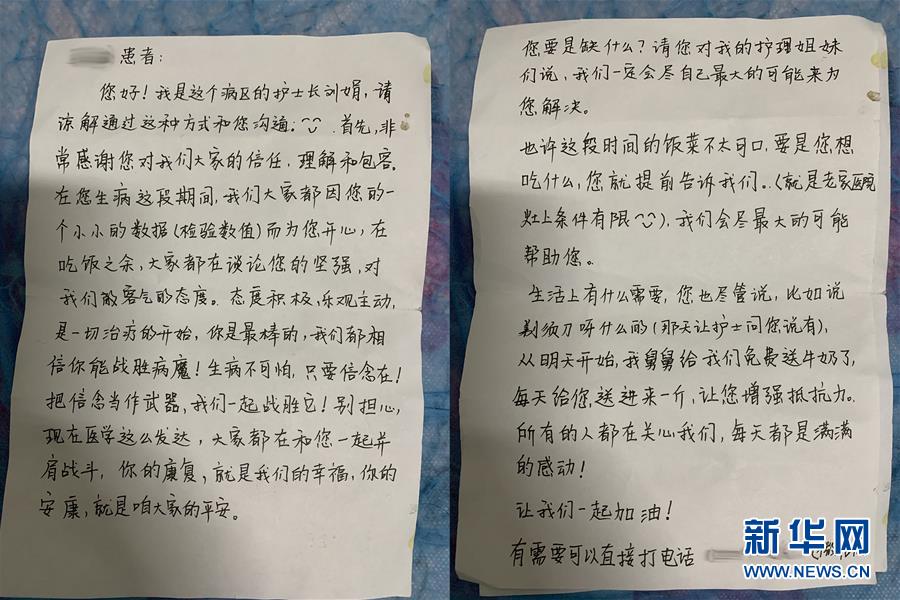 患者：
您好！我是这个病区的护士长刘娟，请
谅解通过这种方式和您沟通。首先，非
常感谢您对我们大家的信任，理解和包容。
在您生病这段期间，我们大家都因您的一
个小小的数据（检验数值）而为您开心，在
吃饭之余，大家都在谈论您的坚强，对
我们般客气的态度。态度积极，乐观主动，
是一切治疗的开始，你是最棒的，我们都相
信你能战胜病魔！生病不可怕，只要信念在！
把信念当作武器，我们一起战胜它！别担心，
现在医学这么发达，大家都在和您一起并
肩战斗，你的康复，就是我们的幸福，你的
安康，就是咱大家的平安。
您要是缺什么？请您对我的护理姐妹
们说，我们一定会尽自己最大的可能来为
您解决。
也许这段时间的饭菜不太可口，要是您想
吃什么，您就提前告诉我们。（就是老家医院
灶上条件有限），我们会尽最大的可能
帮助您。
生活上有什么需要，您也尽管说，比如说
剃须刀呀什么的（那天让护士问您说有），
从明天开始，我舅舅给我们免费送牛奶了，
每天给您送进来一斤，让您增强抵抗力。
所有的人都在关心我们，每天都是满满
的感动！
让我们一起加油！
有需要可以直接打电话
新华网
WWW.NEWS.CN